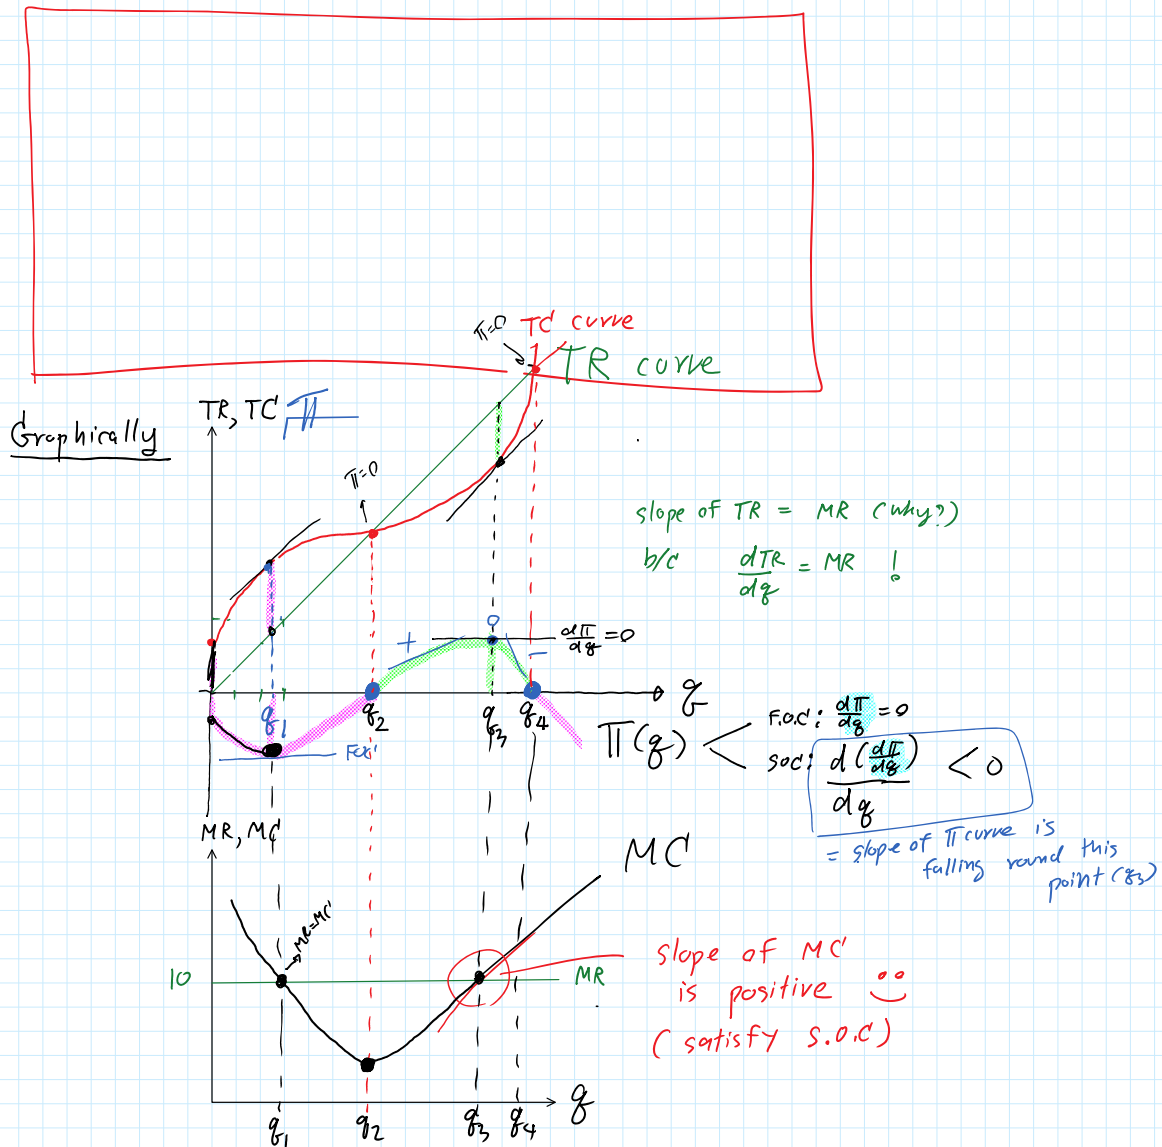 π=0 TC curve
TR curve
TR, TC π
Graphically
π=0
slope of TR = MR (why?)
b/c dTR/dq = MR !
+ 0 − dπ/dq = 0
q
q1 q2 q3 q4
π(q) F.O.C: dπ/dq = 0
SOC: d(dπ/dq)/dq < 0
= slope of π curve is
falling round this
point (q3)
MR, MC
MC
MR=MC
10
MR
slope of MC
is positive
(satisfy S.O.C)
q
q1 q2 q3 q4